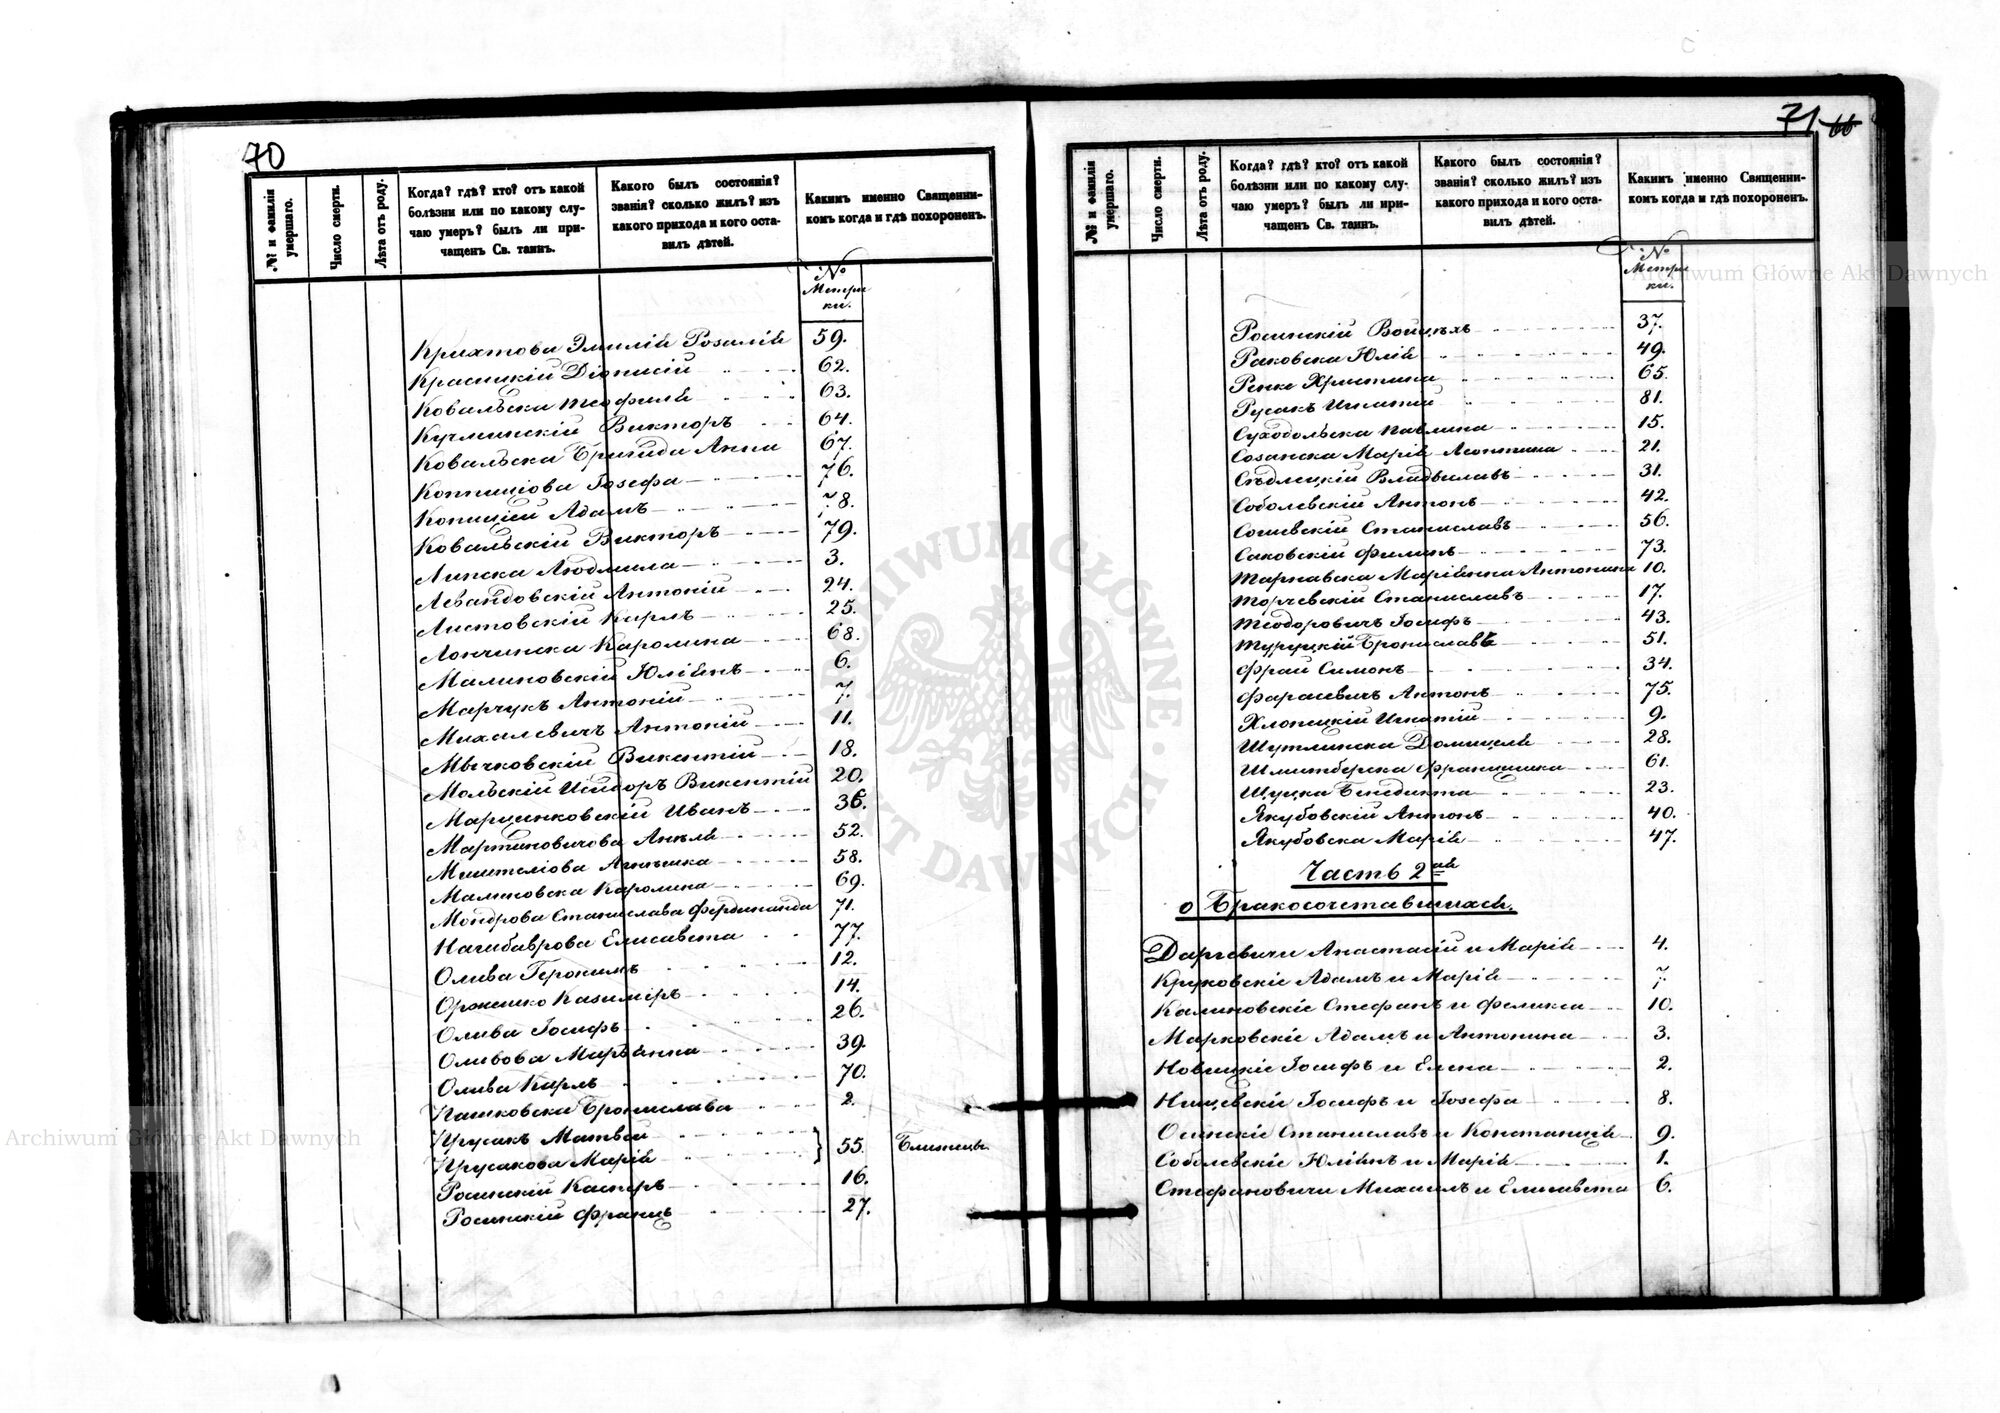 70
№ и фамилія умершаго.
Число смерти.
Лѣта отъ роду.
Когда? гдѣ? кто? отъ какой
болѣзни или по какому слу-
чаю умеръ? былъ ли при-
чащенъ Св. таинъ.
Какого былъ состоянія?
званія? сколько жилъ? изъ
какого прихода и кого оста-
вилъ дѣтей.
Какимъ именно Священни-
комъ когда и гдѣ похороненъ.
№
Метри
ки.
Крихтова Эмилія Розалія 59.
Красицкій Діонисій 62.
Ковальска Теофиля 63.
Кучминскій Викторъ 64.
Ковальска Бригида Анна 67.
Іозефа 76.
Адамъ 78.
Ковальскій Викторъ 79.
Липска Людмила 3.
Левандовскій Антоній 24.
Листовскій Карлъ 25.
Лончинска Каролина 68.
Малиновскій Юліянъ 6.
Марчукъ Антоній 7.
Михалевичъ Антоній 11.
Мѣчковскій Викентій 18.
Мольскій Исидоръ Викентій 20.
Марцинковскій Иванъ 36.
Мартиновичова Анеля 52.
Агнѣшка 58.
Малиновска Каролина 69.
Мондрова Станислава Фердинанда 71.
Елисавета 77.
Олива Геронимъ 12.
Оржешко Казиміръ 14.
Олива Іосифъ 26.
Оливова Маріанна 39.
Олива Карлъ 70.
Пашковска Бронислава 2.
Прусакъ Матвѣй
Прусакова Марія } 55. Близнецы.
Росинскій Касперъ 16.
Росинскій Францъ 27.
71 66
№ и фамилія умершаго.
Число смерти.
Лѣта отъ роду.
Когда? гдѣ? кто? отъ какой
болѣзни или по какому слу-
чаю умеръ? былъ ли при-
чащенъ Св. таинъ.
Какого былъ состоянія?
званія? сколько жилъ? изъ
какого прихода и кого оста-
вилъ дѣтей.
Какимъ именно Священни-
комъ когда и гдѣ похороненъ.
№
Метри
ки.
Росинскій Войцѣхъ 37.
Раковска Юлія 49.
Ренке Христина 65.
Русакъ Игнатій 81.
Суходольска Павлина 15.
Созанска Марія Леонтина 21.
Сѣдлецкій Владиславъ 31.
Соболевскій Антонъ 42.
Станиславъ 56.
Саковскій Филипъ 73.
Тарнавска Маріанна Антонина 10.
Торчевскій Станиславъ 17.
Теодоровичъ Іосифъ 43.
Турицкій Брониславъ 51.
Фрай Симонъ 34.
Фарасевичъ Антонъ 75.
Хлопицкій Игнатій 9.
Шутлинска Домицеля 28.
Шмитберска Францишка 61.
Щуцка Бенедикта 23.
Якубовскій Антонъ 40.
Якубовска Марія 47.
Часть 2ая
о Бракосочетавшихся.
Даргевичи Анастасій и Марія 4.
Круковскіе Адамъ и Марія 7.
Калиновскіе Стефанъ и Фелиция 10.
Марковскіе Адамъ и Антонина 3.
Новицкіе Іосифъ и Елена 2.
Нищевскіе Іосифъ и Іозефа 8.
Осинскіе Станиславъ и Констанція 9.
Соболевскіе Юліянъ и Марія 1.
Стефановичи Михаилъ и Елисавета 6.
Archiwum Główne Akt Dawnych
Archiwum Główne Akt Dawnych
ARCHIWUM GŁÓWNE AKT DAWNYCH